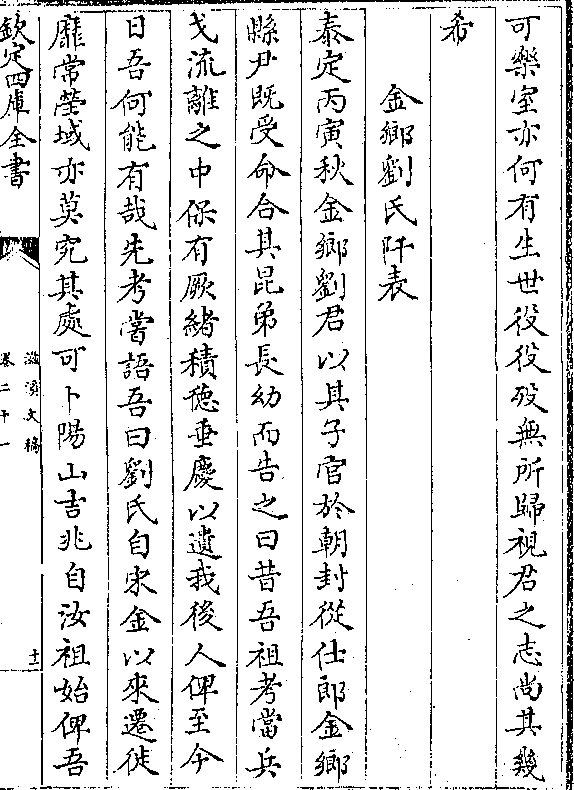 可樂室亦何有生世役役歿無所歸視君之志尚其幾
希
金鄉劉氏阡表
泰定丙寅秋金鄉劉君以其子官於朝封從仕郎金鄉
縣尹既受命合其昆弟長幼而告之曰昔吾祖考當兵
戈流離之中保有厥緒積德垂慶以遺我後人俾至今
日吾何能有哉先考嘗語吾曰劉氏自宋金以來遷徙
靡常塋域亦莫究其處可卜陽山吉兆自汝祖始俾吾
欽定四庫全書
滋溪文稿
卷二十一
十二